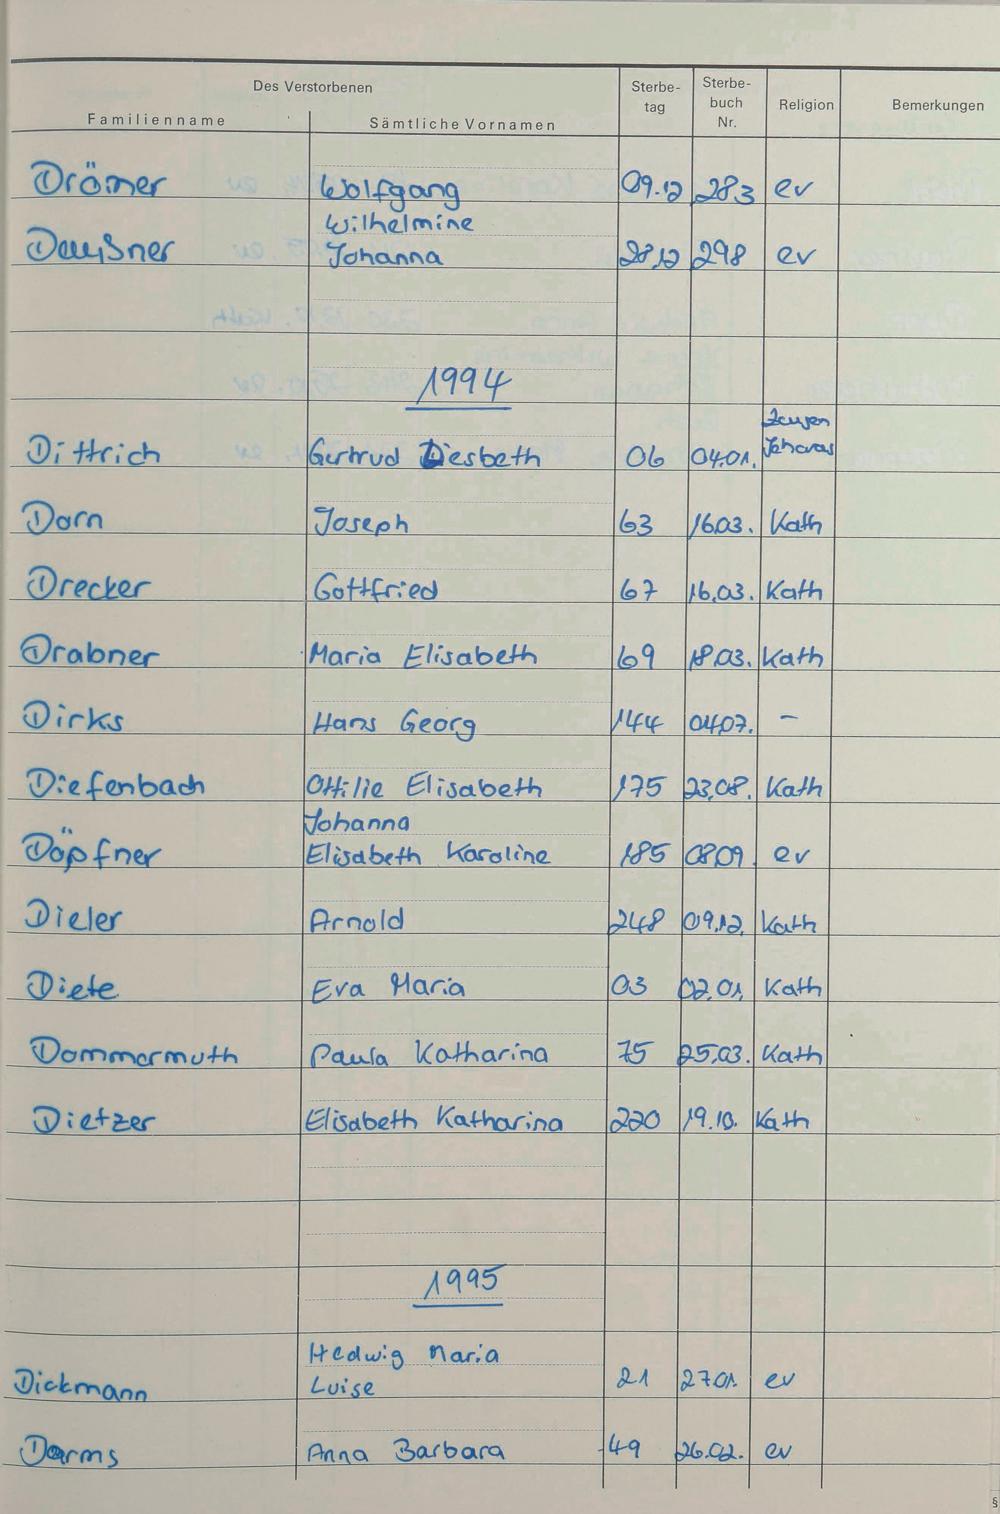 Des Verstorbenen
Familienname Sämtliche Vornamen Sterbe-tag Sterbe-buch Nr. Religion Bemerkungen
Drömer Wolfgang 09.12 283 ev
Wilhelmine
Johanna 28.12 298 ev
1994
Zeugen
Dittrich Gertrud Diesbeth 06 04.01. Jehovas
Dorn Joseph 63 16.03. Kath
Drecker Gottfried 67 16.03. Kath
Drabner Maria Elisabeth 69 18.03. Kath
Dirks Hans Georg 144 04.07. –
Diefenbach Ottilie Elisabeth 175 23.08. Kath
Johanna
Döpfner Elisabeth Karoline 185 08.09 ev
Dieler Arnold 248 09.12. Kath
Diete Eva Maria 03 02.01. Kath
Dommermuth Paula Katharina 75 25.03. Kath
Dietzer Elisabeth Katharina 220 19.10. Kath
1995
Hedwig Maria
Dickmann Luise 21 27.01. ev
Darms Anna Barbara 49 26.02. ev
§